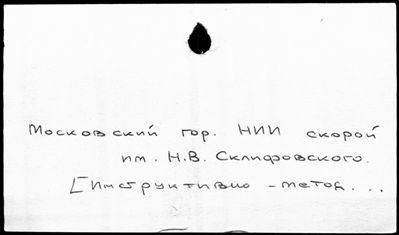 Московский гор. НИИ скорой
им. Н.В. Склифовского.
[Инструктивно-метод...